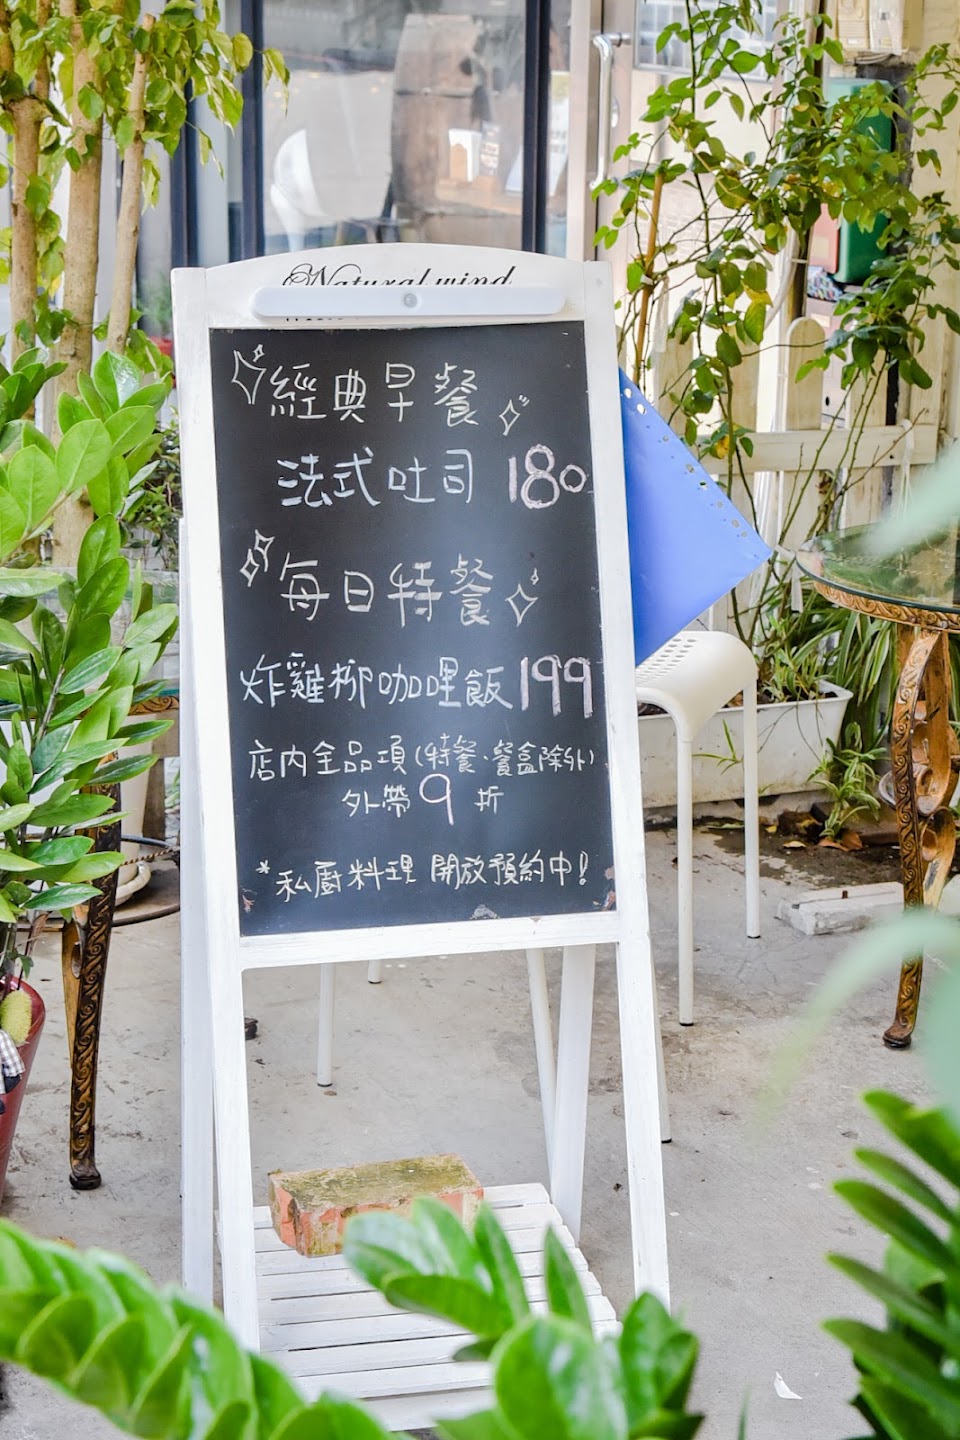 Natural wind
經典早餐
法式吐司 180
每日特餐
炸雞柳咖哩飯 199
店內全品項(特餐、餐盒除外)
外帶9折
*私廚料理 開放預約中!